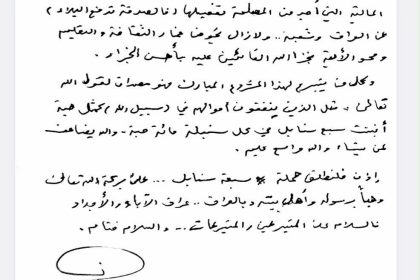 المالية التي أجد من المصلحة تفضيلها (فالصدقة تدفع البلاء)
عن العراق وشعبه .. ولازال يخوض غمار الثقافة والتعليم
ومحو الأمية فجزا الله القائمين عليه بأحسن الجزاء.
وكل من يتبرع لهذا المشروع المبارك فهو مصداق لقول الله
تعالى: مثل الذين ينفقون أموالهم في سبيل الله كمثل حبة
أنبتت سبع سنابل في كل سنبلة مائة حبة - والله يضاعف
لمن يشاء والله واسع عليم.
إذن فلنطلق حملة * سبعة سنابل ... على بركة الله تعالى
وحباً برسوله وأهل بيته وبالعراق .. عراق الآباء والأجداد
فالسلام على المتبرعين والمتبرعات ... والسلام ختام.